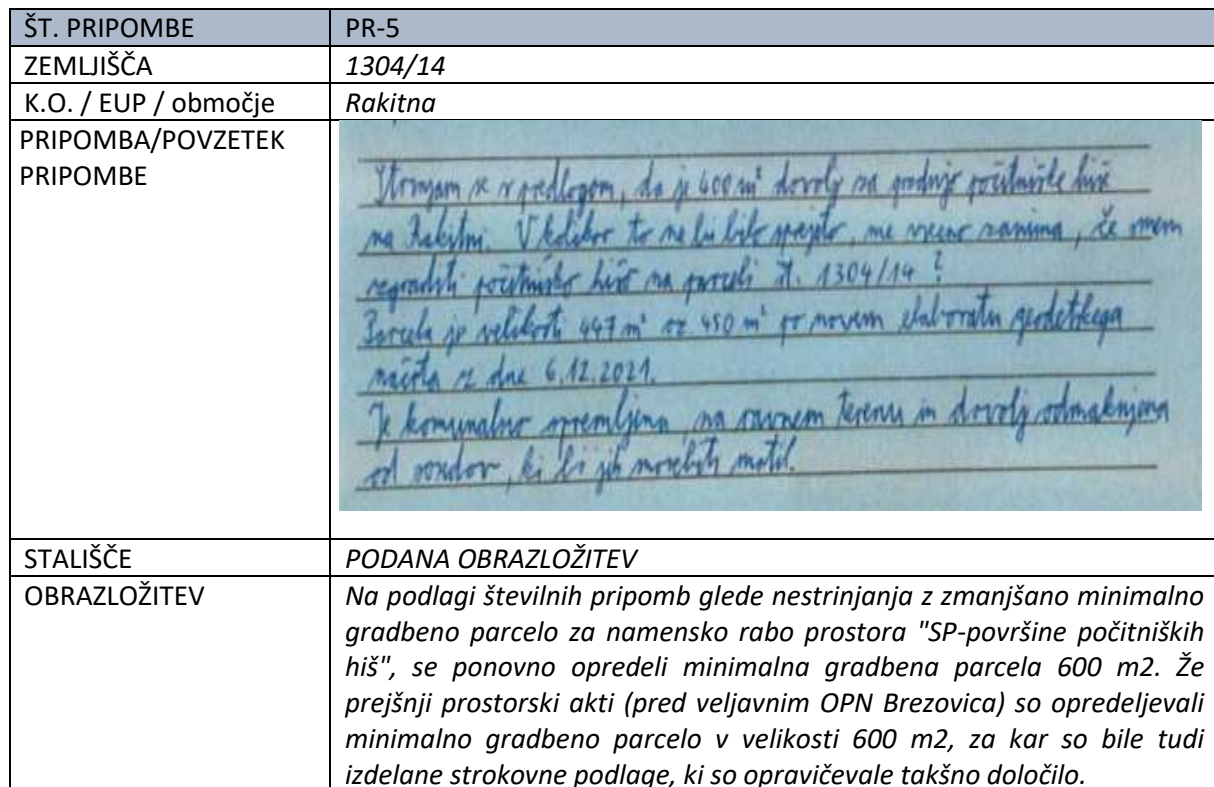 ŠT. PRIPOMBE PR-5
ZEMLJIŠČA 1304/14
K.O. / EUP / območje Rakitna
PRIPOMBA/POVZETEK
PRIPOMBE
Strinjam se s predlogom, da je 400 m² dovolj za gradnjo počitniške hiše
na Rakitni. V kolikor to ne bi bilo sprejeto, me vseeno zanima, če smem
zgraditi počitniško hišo na parceli št. 1304/14?
Parcela je velikosti 447 m² oz 450 m² po novem elaboratu geodetskega
načrta z dne 6.12.2021.
Je komunalno opremljena, na ravnem terenu in dovolj odmaknjena
od sosedov, ki bi jih morebiti motil.
STALIŠČE PODANA OBRAZLOŽITEV
OBRAZLOŽITEV Na podlagi številnih pripomb glede nestrinjanja z zmanjšano minimalno
gradbeno parcelo za namensko rabo prostora "SP-površine počitniških
hiš", se ponovno opredeli minimalna gradbena parcela 600 m2. Že
prejšnji prostorski akti (pred veljavnim OPN Brezovica) so opredeljevali
minimalno gradbeno parcelo v velikosti 600 m2, za kar so bile tudi
izdelane strokovne podlage, ki so opravičevale takšno določilo.